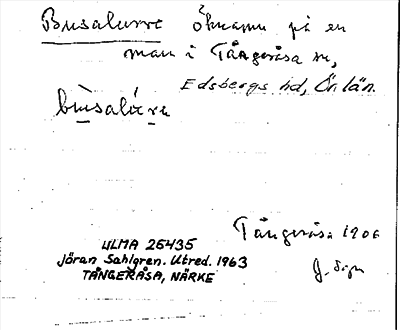 Busalurre Öknamn på en
man i Tångeråsa sn,
Edsbergs hd, Ör. län.
Tångeråsa 1906
ULMA 26435
Jöran Sahlgren. Utred. 1963
TÅNGERÅSA, NÄRKE